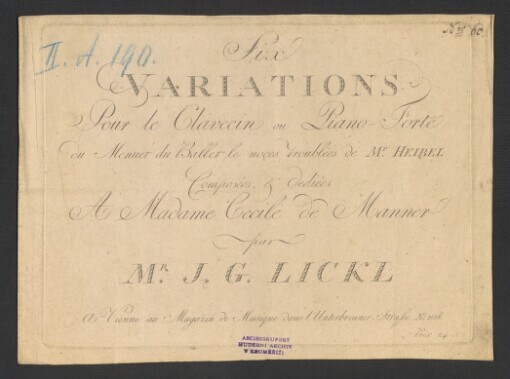 II. A. 190.
Nro 60
Six
VARIATIONS
Pour le Clavecin ou Piano-Forte
du Menuet du Ballet le noçes troublées de Mr HEIBEL
Composées & dediées
A Madame Cecile de Manner
par
MR. J. G. LICKL
A Vienne au Magazin de Musique dans l'Unterbreuner Straße No 1158
Prix 24
ARCIBISKUPSKÝ
HUDEBNÍ ARCHIV
V KROMĚŘÍŽI